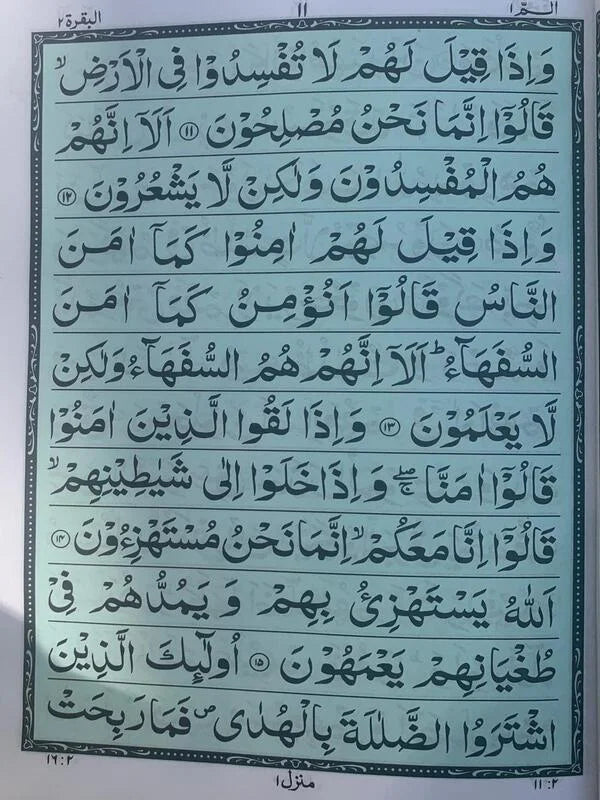 الٓمّٓ ١
١١
البقرة ٢
وَاِذَا قِيْلَ لَهُمْ لَا تُفْسِدُوْا فِى الْاَرْضِ ۙ
قَالُوْٓا اِنَّمَا نَحْنُ مُصْلِحُوْنَ ⑪ اَلَآ اِنَّهُمْ
هُمُ الْمُفْسِدُوْنَ وَلٰكِنْ لَّا يَشْعُرُوْنَ ⑫
وَاِذَا قِيْلَ لَهُمْ اٰمِنُوْا كَمَآ اٰمَنَ
النَّاسُ قَالُوْٓا اَنُؤْمِنُ كَمَآ اٰمَنَ
السُّفَهَآءُ ؕ اَلَآ اِنَّهُمْ هُمُ السُّفَهَآءُ وَلٰكِنْ
لَّا يَعْلَمُوْنَ ⑬ وَاِذَا لَقُوا الَّذِيْنَ اٰمَنُوْا
قَالُوْٓا اٰمَنَّا ۚۖ وَاِذَا خَلَوْا اِلٰى شَيٰطِيْنِهِمْ ۙ
قَالُوْٓا اِنَّا مَعَكُمْ ۙ اِنَّمَا نَحْنُ مُسْتَهْزِءُوْنَ ⑭
اَللّٰهُ يَسْتَهْزِئُ بِهِمْ وَ يَمُدُّهُمْ فِىْ
طُغْيَانِهِمْ يَعْمَهُوْنَ ⑮ اُولٰٓئِكَ الَّذِيْنَ
اشْتَرَوُا الضَّلٰلَةَ بِالْهُدٰى ۪ فَمَا رَبِحَتْ
١١:٢
منزل ١
١٦:٢